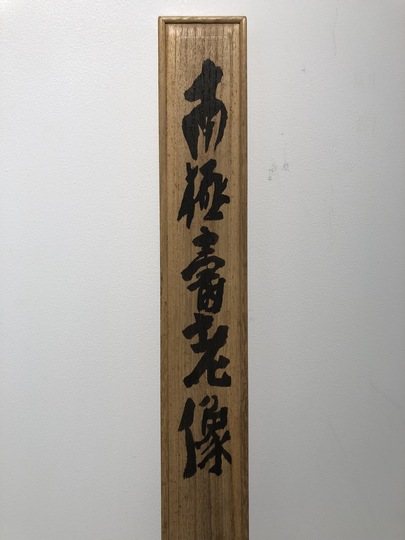 南極壽老像